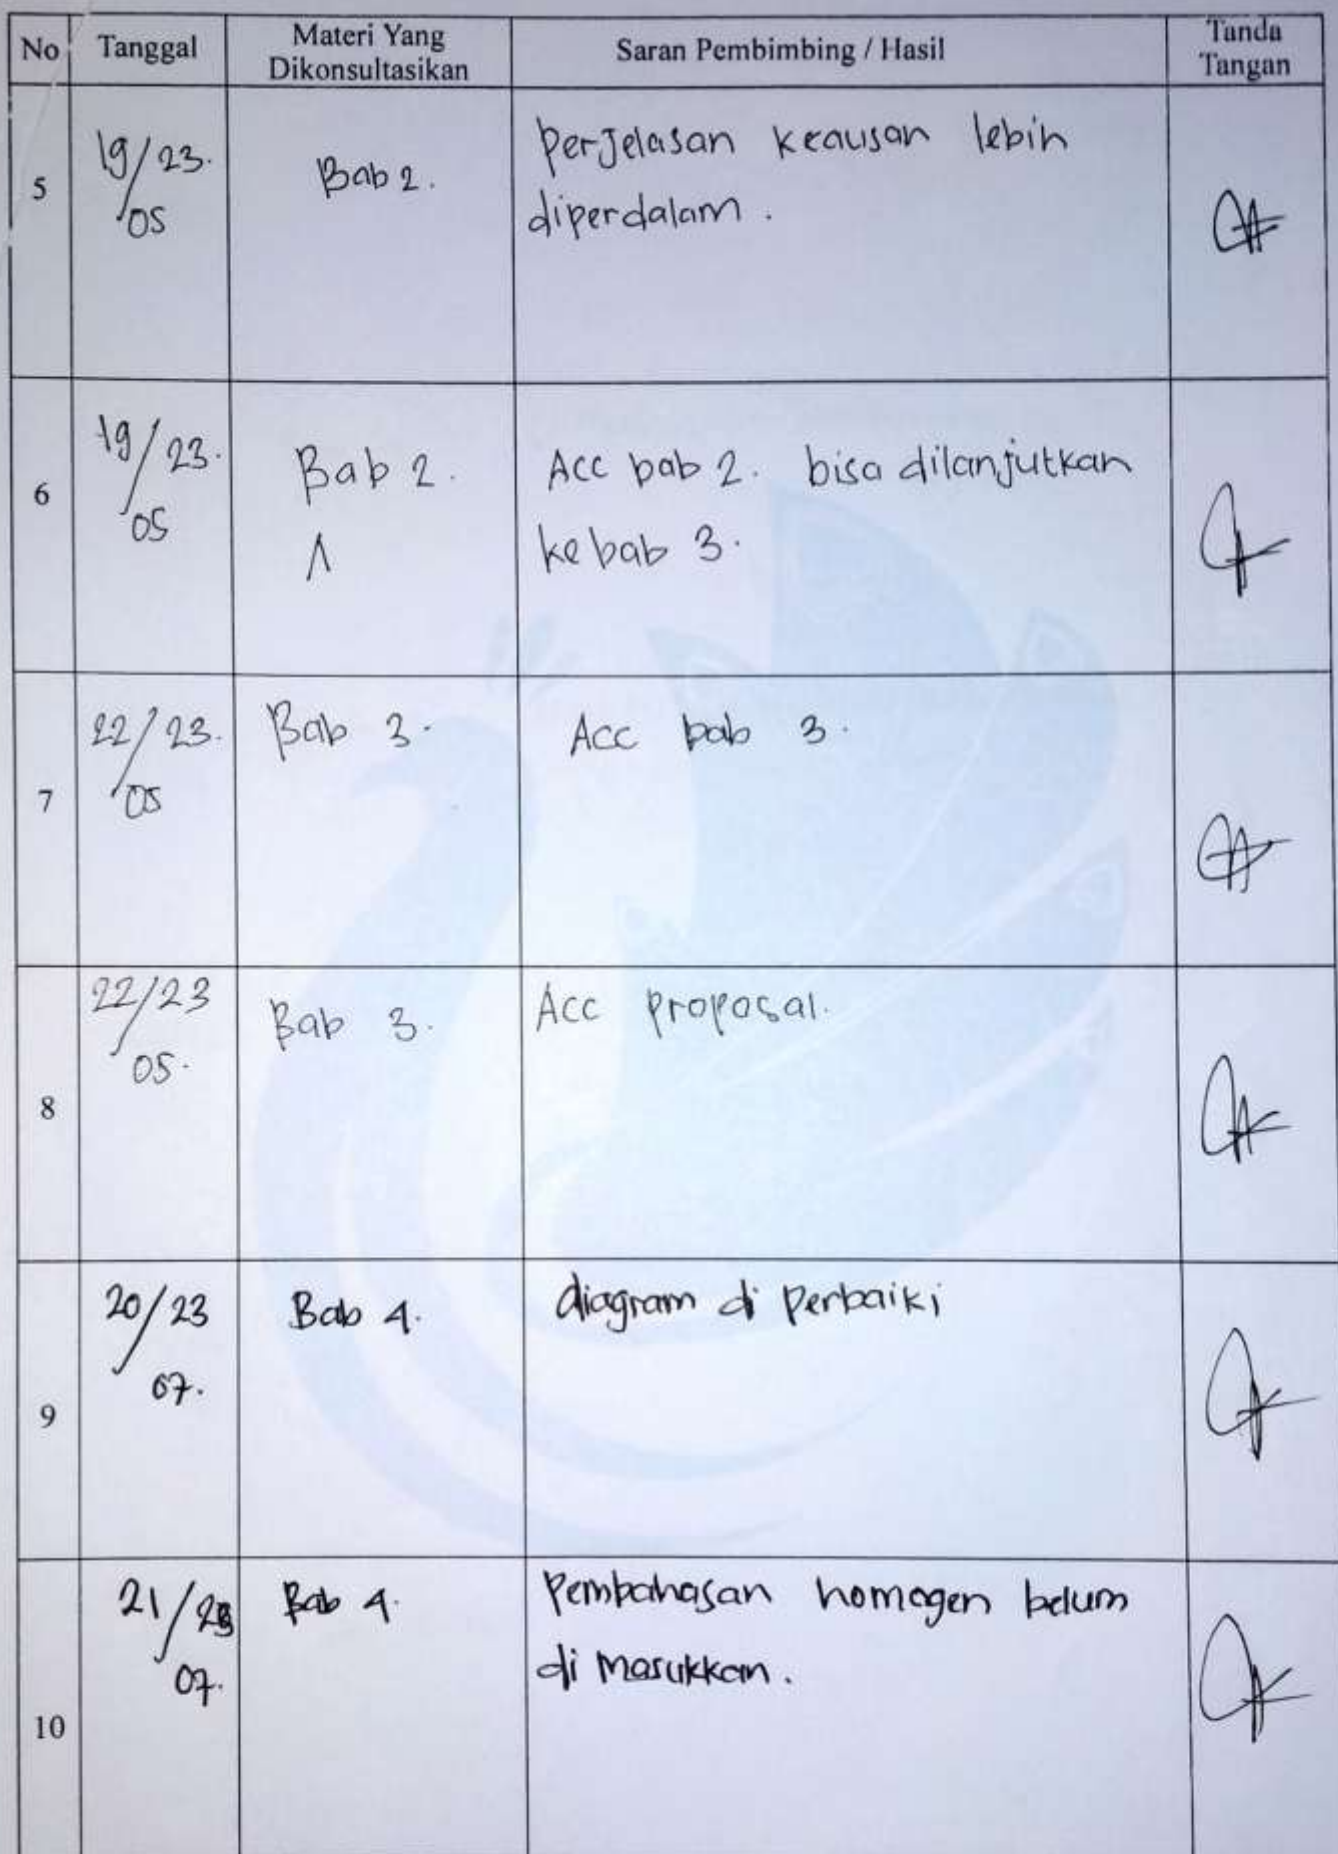 No Tanggal Materi Yang Dikonsultasikan Saran Pembimbing / Hasil Tanda Tangan
5 19/23. 05 Bab 2. Perjelasan keausan lebih
diperdalam.
6 19/23. 05 Bab 2. Acc bab 2. bisa dilanjutkan
ke bab 3.
7 22/23. 05 Bab 3. Acc bab 3.
8 22/23 05. Bab 3. Acc Proposal.
9 20/23 07. Bab 4. diagram di Perbaiki
10 21/23 07. Bab 4. Pembahasan homogen belum
di Masukkan.